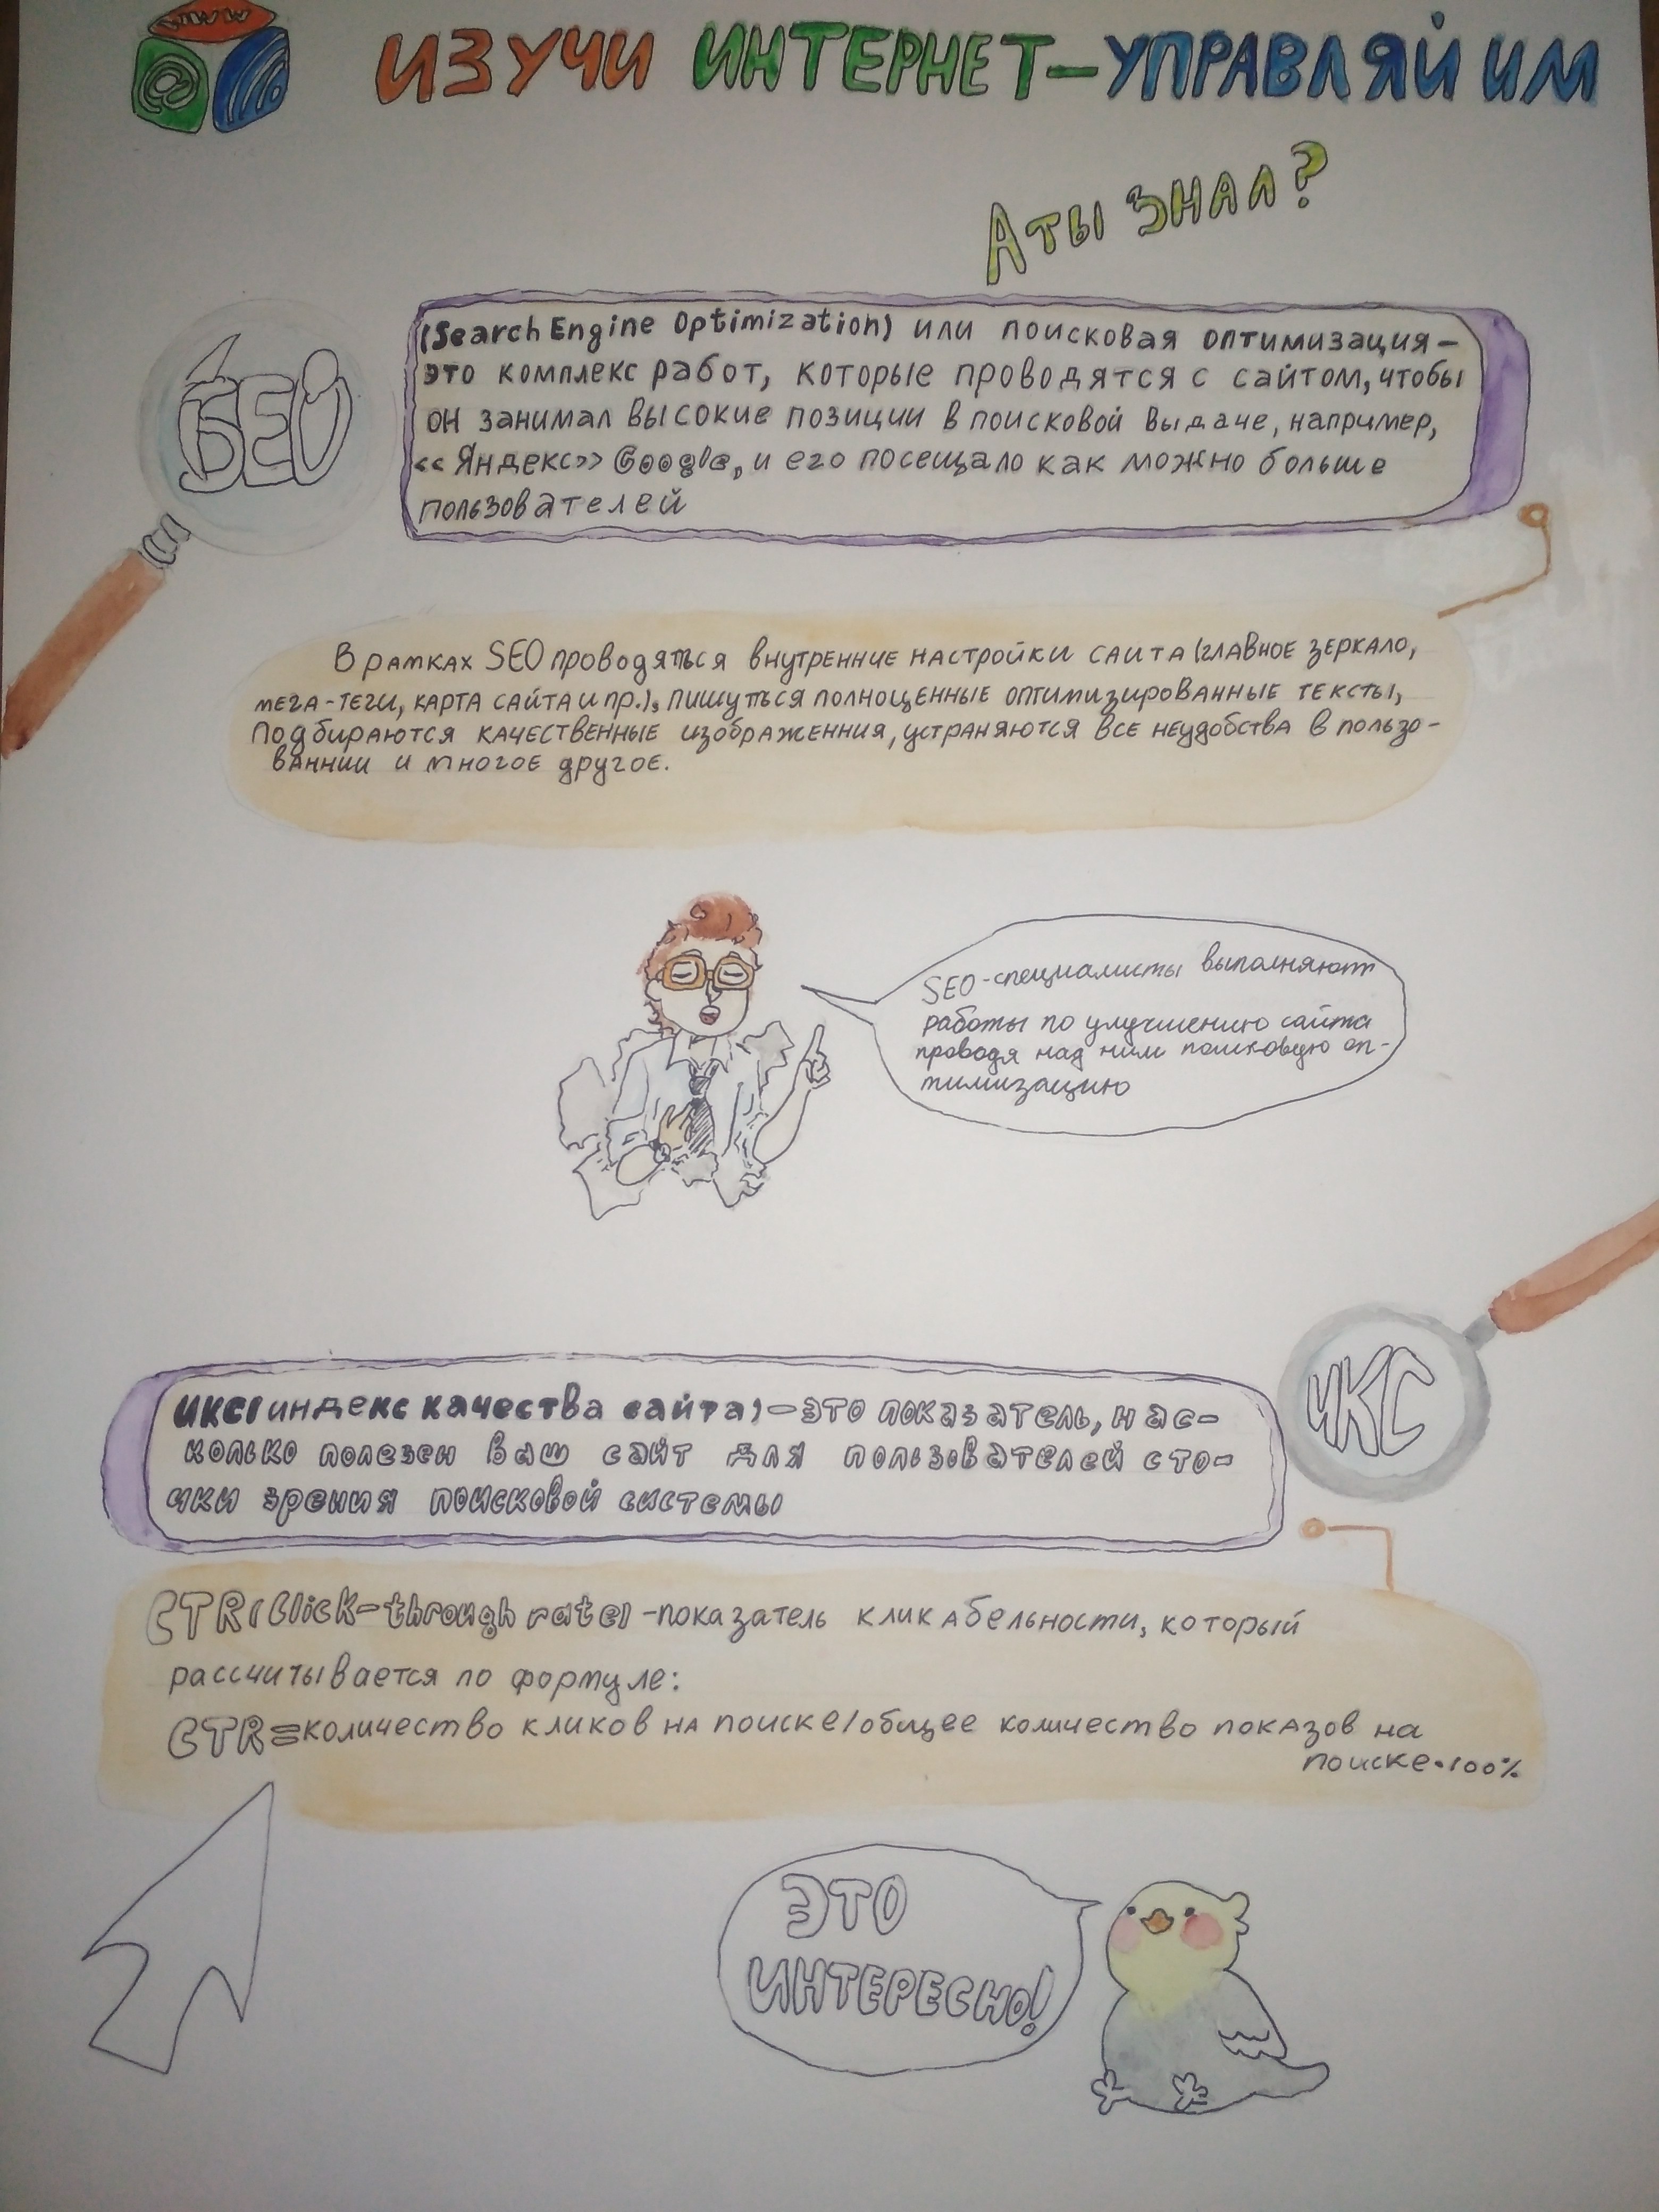 WWW
@
ИЗУЧИ ИНТЕРНЕТ-УПРАВЛЯЙ ИМ
А ты знал?
SEO
(Search Engine Optimization) или поисковая оптимизация-
это комплекс работ, которые проводятся с сайтом, чтобы
он занимал высокие позиции в поисковой выдаче, например,
<<Яндекс>> Google, и его посещало как можно больше
пользователей
В рамках SEO проводяться внутренние настройки саита (главное зеркало,
мега-теги, карта сайта и пр.), пишуться полноценные оптимизированные тексты,
Подбираются качественные изображенния, устраняются все неудобства в пользо-
ваннии и многое другое.
SEO-специалисты выполняют
работы по улучшению сайта
проводя над ним поисковую оп-
тимизацию
ИКС
ИКС(индекс качества сайта)-это показатель, нас-
колько полезен ваш сайт для пользователей с то-
чки зрения поисковой системы
CTR(Click-through rate)-показатель кликабельности, который
рассчитывается по формуле:
CTR=количество кликов на поиске/общее количество показов на
поиске·100%
ЭТО
ИНТЕРЕСНО!